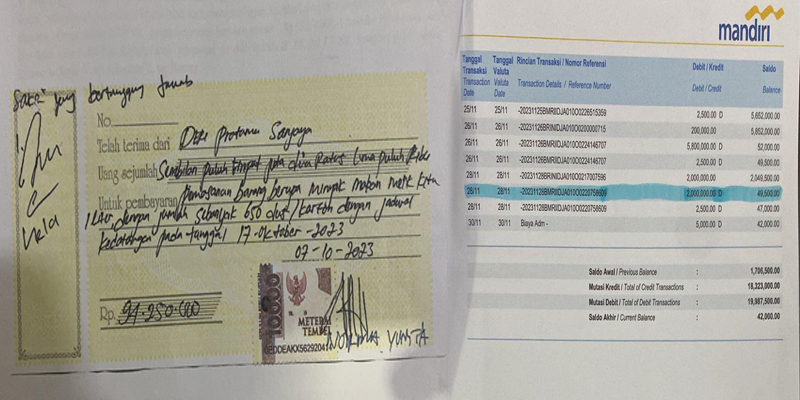 Saksi yang bertanggung jawab
1.
Vela
No.
Telah terima dari Deki Pratama Sanjaya
Uang sejumlah Sembilan puluh empat juta dua Ratus Lima puluh Ribu
Untuk pembayaran Pemesanan barang berupa minyak makan merk Kita
1 Liter, dengan jumlah sebanyak 650 dus / karton dengan jadwal
kedatangan pada tanggal 17-Oktober-2023
07-10-2023
Rp. 94.250.000
10000
METERAI
TEMPEL
YUNITA
mandiri
Tanggal Transaksi Tanggal Valuta Rincian Transaksi / Nomor Referensi Debit / Kredit Saldo
Transaction Date Value Date Transaction Details / Reference Number Debit / Credit Balance
25/11 25/11 -20231125BMRIIDJA010O0226515359 2,500.00 D 5,652,000.00
26/11 26/11 -20231126BRINIDJA010O0200000715 200,000.00 5,852,000.00
26/11 26/11 -20231126BMRIIDJA010O0224146707 5,800,000.00 D 52,000.00
26/11 26/11 -20231126BMRIIDJA010O0224146707 2,500.00 D 49,500.00
28/11 28/11 -20231128BRINIDJA010O0217007596 2,000,000.00 2,049,500.00
28/11 28/11 -20231128BMRIIDJA010O0220758609 2,000,000.00 D 49,500.00
28/11 28/11 -20231128BMRIIDJA010O0220758609 2,500.00 D 47,000.00
30/11 30/11 Biaya Adm - 5,000.00 D 42,000.00
Saldo Awal / Previous Balance : 1,706,500.00
Mutasi Kredit / Total of Credit Transactions : 18,323,000.00
Mutasi Debit / Total of Debit Transactions : 19,987,500.00
Saldo Akhir / Current Balance : 42,000.00